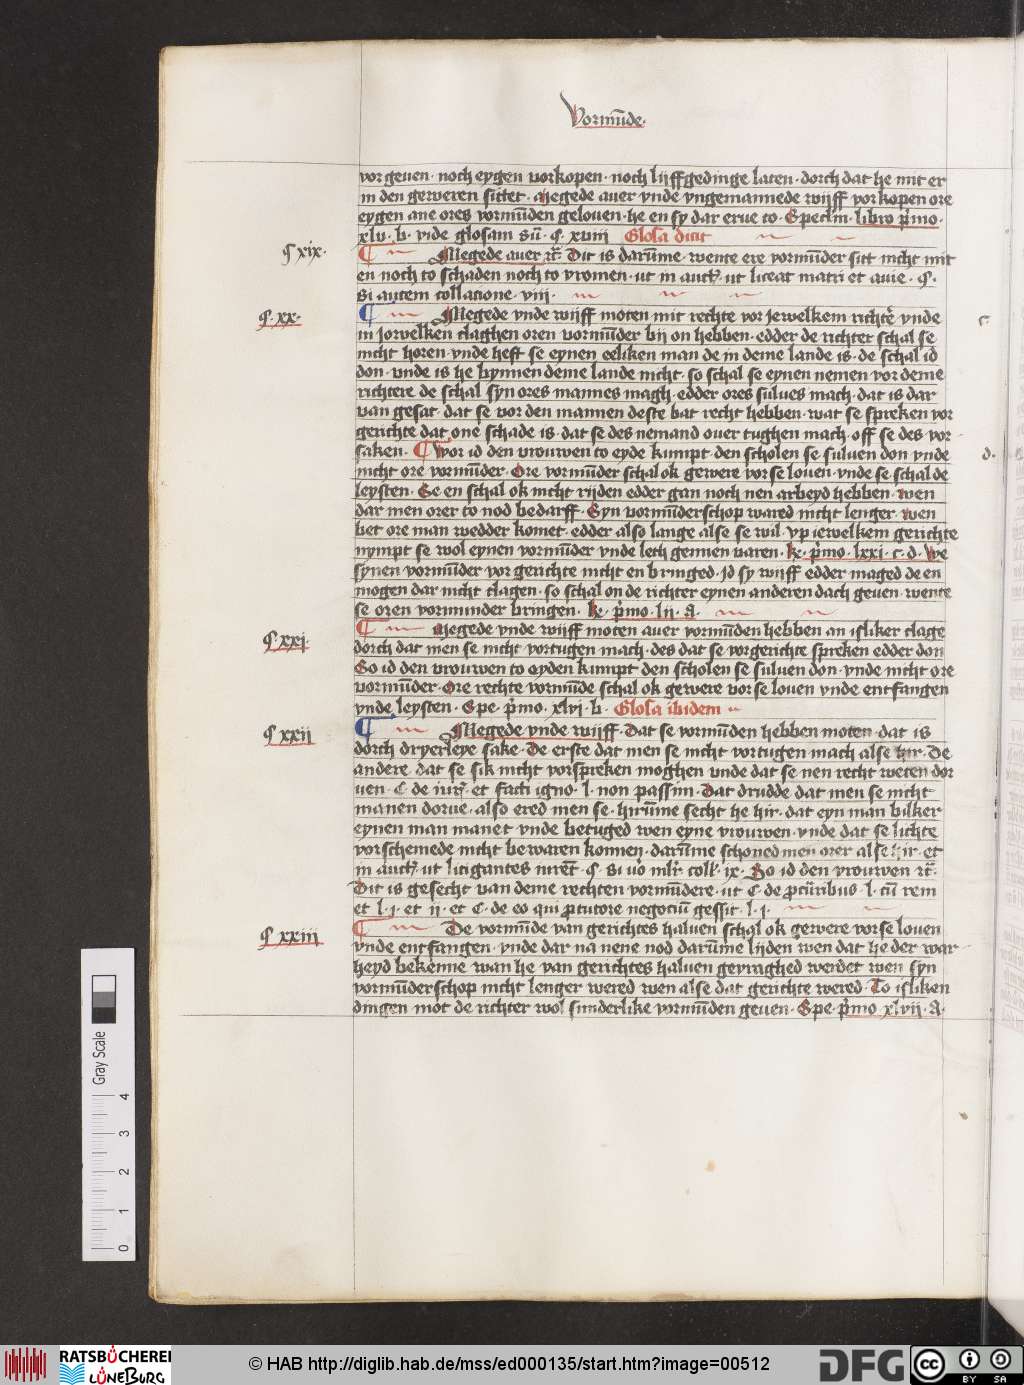 Vormu̅de·
vor geuen · noch eygen vorkopen · noch lijffgedinge laten · dorch dat he mit er
in den geweren sittet · Megede auer vnde vngemannede wijff vorkopen ore
eygen ane ores vormu̅den gelouen · he en sy dar erue to · Speclm̅ · libro p̓mo ·
xlv · b · vide glosam su̅ · ꝯ · xviii Glosa dicit
¶ xix·
¶ Megede auer ꝛc̅ · Dit is daru̅me · wente ere vormu̅der sitt nicht mit
en noch to schaden noch to vromen · ut in auct̅ · ut liceat matri et auie · ꝯ ·
Si autem collatione · viii ·
¶ · xx ·
¶ Megede vnde wijff moten mit rechte vor jewelkem richte̓ vnde
in jowelken claghen oren vormu̅der bij on hebben · edder de richter schal se
nicht horen · vnde heft se eynen eeliken man de in deme lande is · de schal id
don · vnde is he bynnen deme lande nicht · so schal se eynen nemen vor deme
richtere de schal syn ores mannes magh · edder ores sulues mach · dat is dar
van gesat · dat se vor den mannen deste bat recht hebben · wat se spreken vor
gerichte dat one schade is · dat se des nemand ouer tughen mach · off se des vor
saken · ¶ Wor id den vrouwen to eyde kumpt · den scholen se suluen don vnde
nicht ore vormu̅der · Ore vormu̅der schal ok gewere vor se louen · vnde se schal de
leysten · Se en schal ok nicht rijden edder gan noch nen arbeyd hebben · wen
dar men orer to nod bedarff · Syn vormu̅derschop wared nicht lenger · wen
bet ore man wedder komet · edder also lange alse se wil · vp jewelkem gerichte
nympt se wol eynen vormu̅der vnde lech gennen varen · k̅e · p̓mo · lxxi · c · d · We
synen vormu̅der vor gerichte nicht en bringed · Jd sy wijff edder maged de en
mogen dar nicht clagen · so schal on de richter eynen anderen dach geuen · wente
se oren vormunder bringen · k̅e · p̓mo · lii · a ·
c·
d·
¶ xxi·
¶ Megede vnde wijff moten auer vormu̅den hebben an isliker clage
dorch dat men se nicht vortugen mach · des dat se vorgerichte spreken edder don
So id den vrouwen to eyden kumpt den scholen se suluen don · vnde nicht ore
vormu̅der · Ore rechte vormu̅de schal ok gewere vor se louen vnde entfangen
vnde leysten · Spe · p̓mo · xlvi · b · Glosa ibidem
¶ xxii
¶ Megede vnde wijff · Dat se vormu̅den hebben moten · dat is
dorch dryerleye sake · De erste dat men se nicht vortugen mach alse hir · De
andere · dat se sik nicht vorspreken moghen vnde dat se nen recht weten dor
uen · C de iur̅ · et facti igno · l · non passim · Dat drudde dat men se nicht
manen dorue · also ered men se · hiru̅me secht he hir · dat eyn man bilker
eynen man manet vnde betuged wen eyne vrouwen · vnde dat se lichte
vorschemede nicht bewaren konnen · daru̅me schoned men orer alse hir · et
in auct̅ · ut litigantes iuret̅ · ꝯ · si u̓o ml̅r · coll̅ · ix · So id den vrouwen ꝛc̅ ·
Dit is gesecht van deme rechten vormu̅dere · ut C · de ꝓcu̅ribus · l · cu̅ rem
et l · j · et ii · et C · de eo qui ꝓ tutore negociu̅ gessit · l · j ·
¶ xxiii
¶ De vormu̅de van gerichtes haluen schal ok gewere vorse louen
vnde entfangen · vnde dar na nene nod daru̅me lijden wen dat he der war
heyd bekenne wan he van gerichtes haluen gevraghed werdet wen syn
vormu̅derschop nicht lenger wered wen alse dat gerichte wered · To isliken
dingen mot de richter wol sunderlike vormu̅den geuen · Spe · p̓mo xlvii · a ·
Gray Scale
0 1 2 3 4
RATSBÜCHEREI LÜNEBURG
© HAB http://diglib.hab.de/mss/ed000135/start.htm?image=00512
DFG
cc BY SA